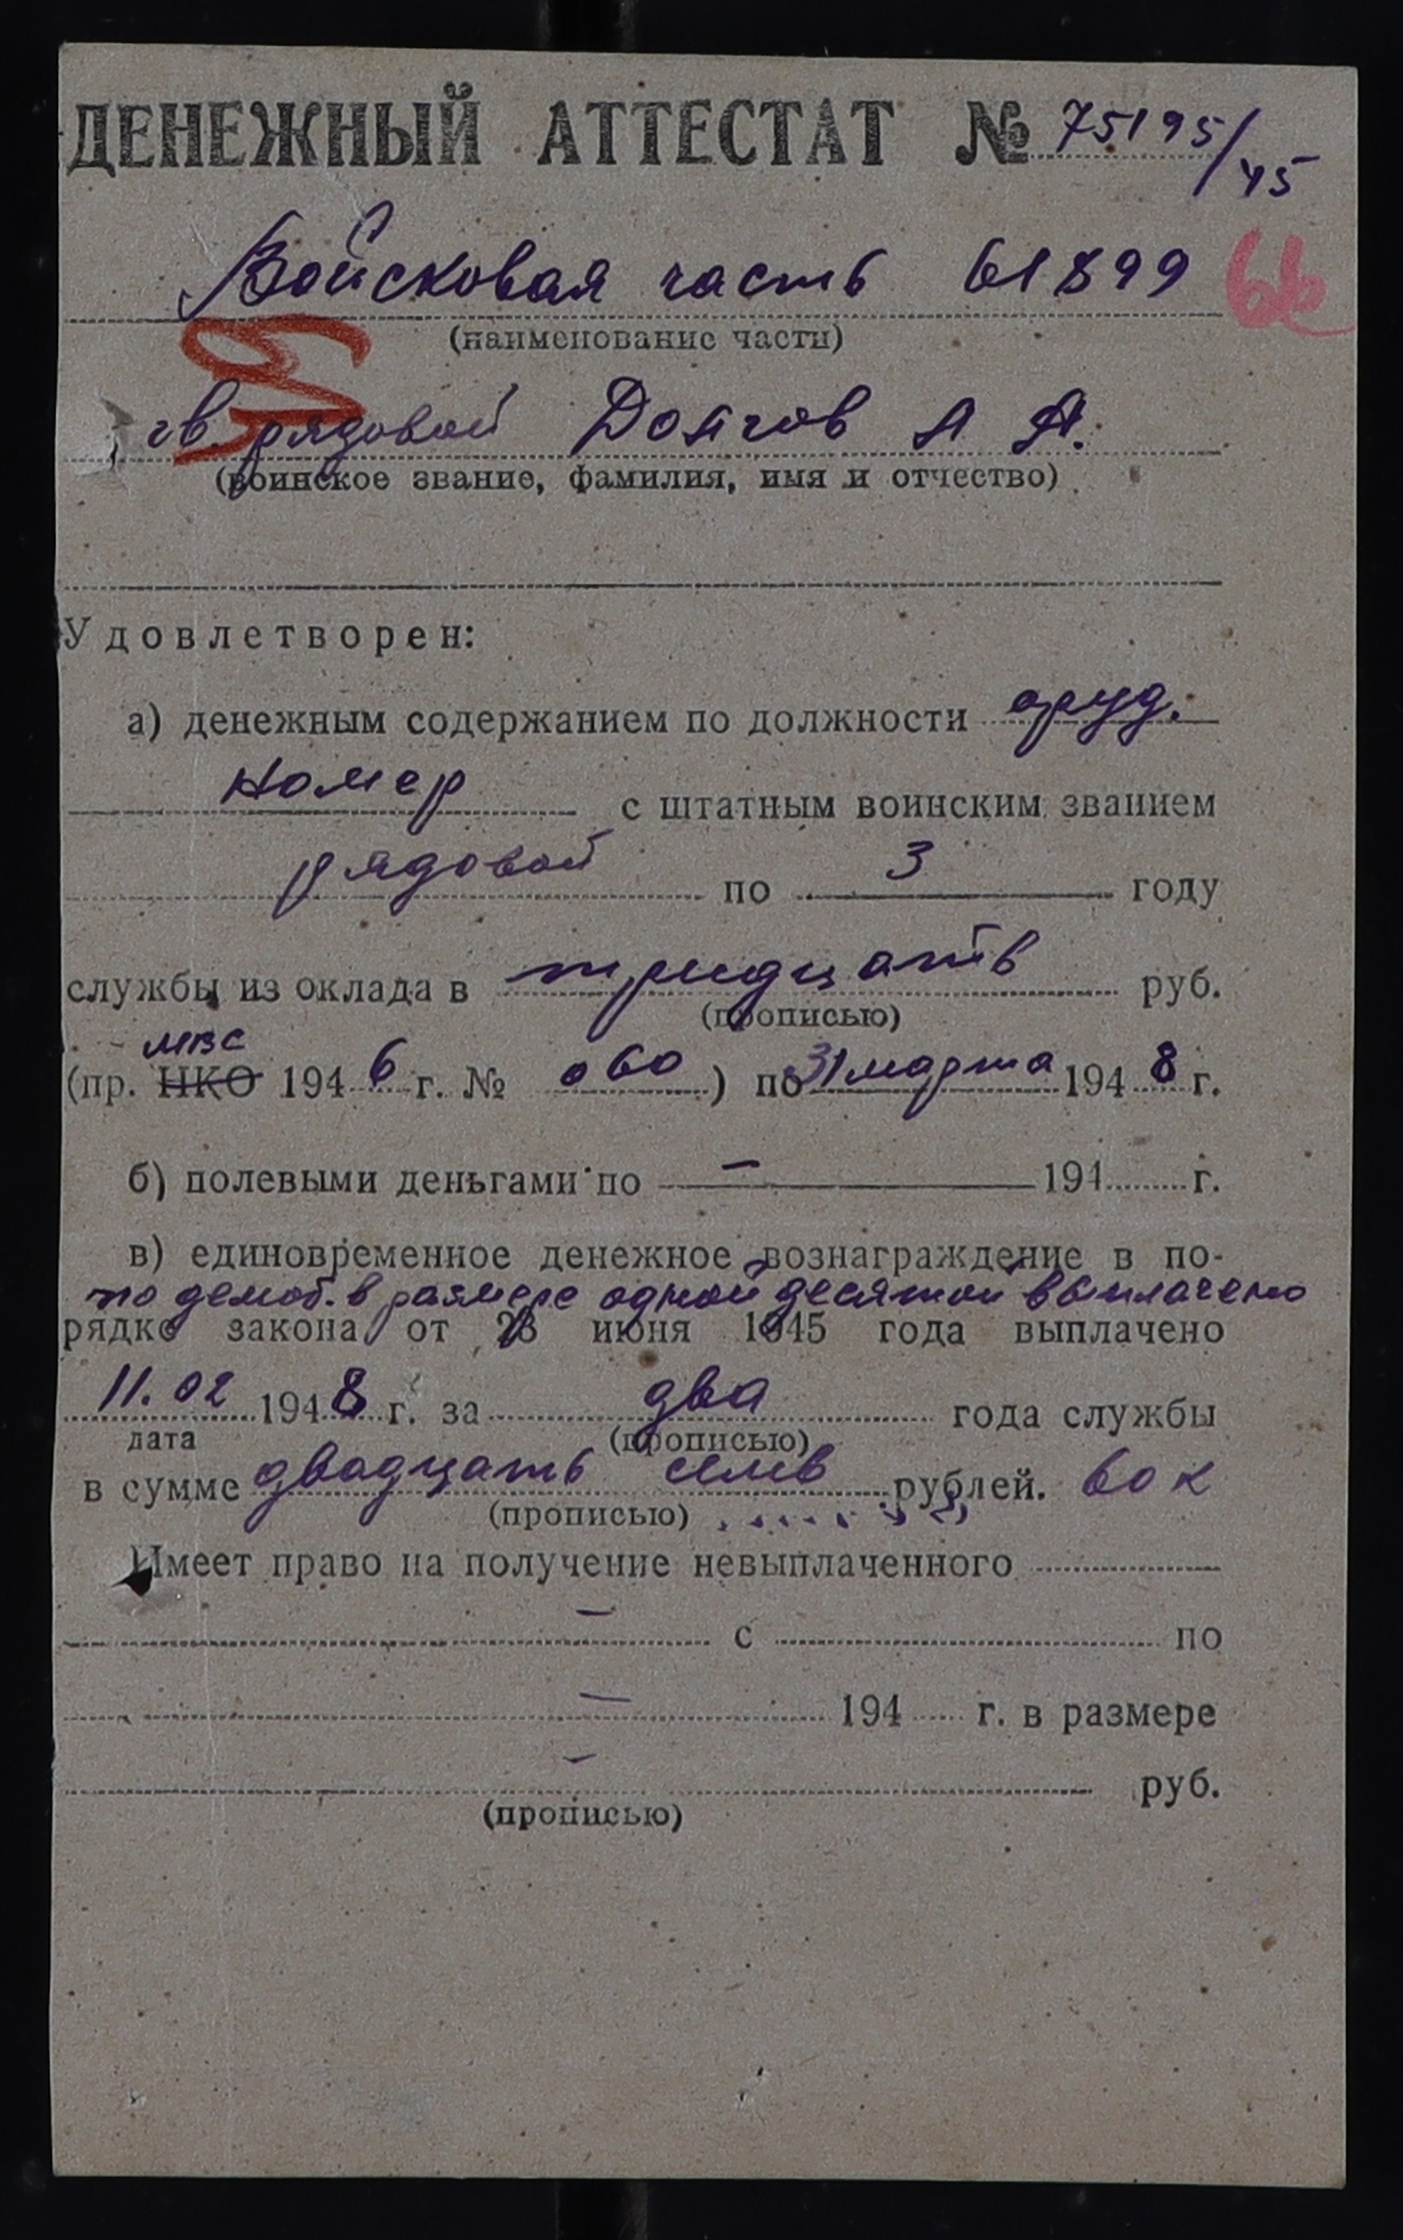 ДЕНЕЖНЫЙ АТТЕСТАТ № 75195/45
Войсковая часть 61899 66
(наименование части)
гв. рядовой Долгов А. А.
(воинское звание, фамилия, имя и отчество)
Удовлетворен:
а) денежным содержанием по должности оруд.
номер с штатным воинским званием
рядовой по 3 году
службы из оклада в тридцать руб.
(прописью)
МВС
(пр. НКО 1946 г. № 060) по 31 марта 1948 г.
б) полевыми деньгами по — 194 г.
в) единовременное денежное вознаграждение в по-
по демоб. в размере одной десятой выплачено
рядке закона от 23 июня 1945 года выплачено
11.02 1948 г. за два года службы
дата (прописью)
в сумме двадцать семь рублей. 60 к
(прописью)
Имеет право на получение невыплаченного
— с по
— 194 г. в размере
— руб.
(прописью)